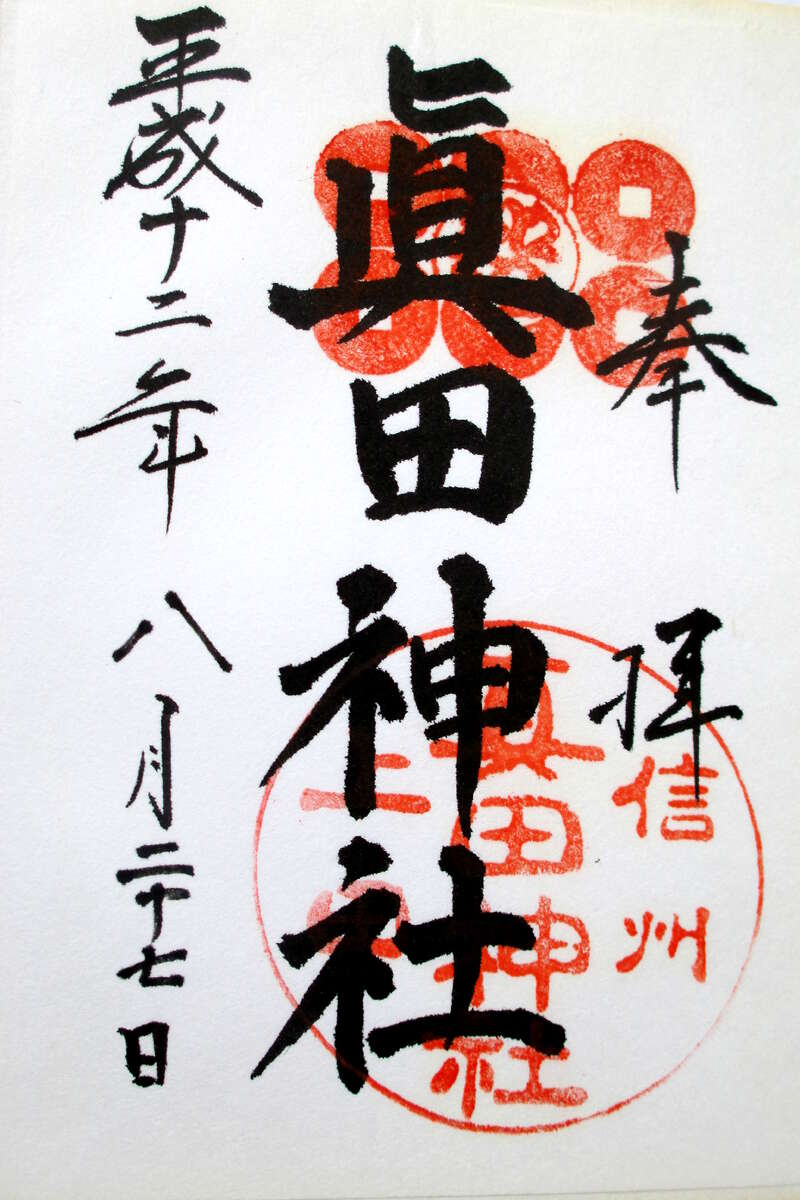 奉拝
眞田神社
平成十二年八月二十七日
信州
真田神社
上